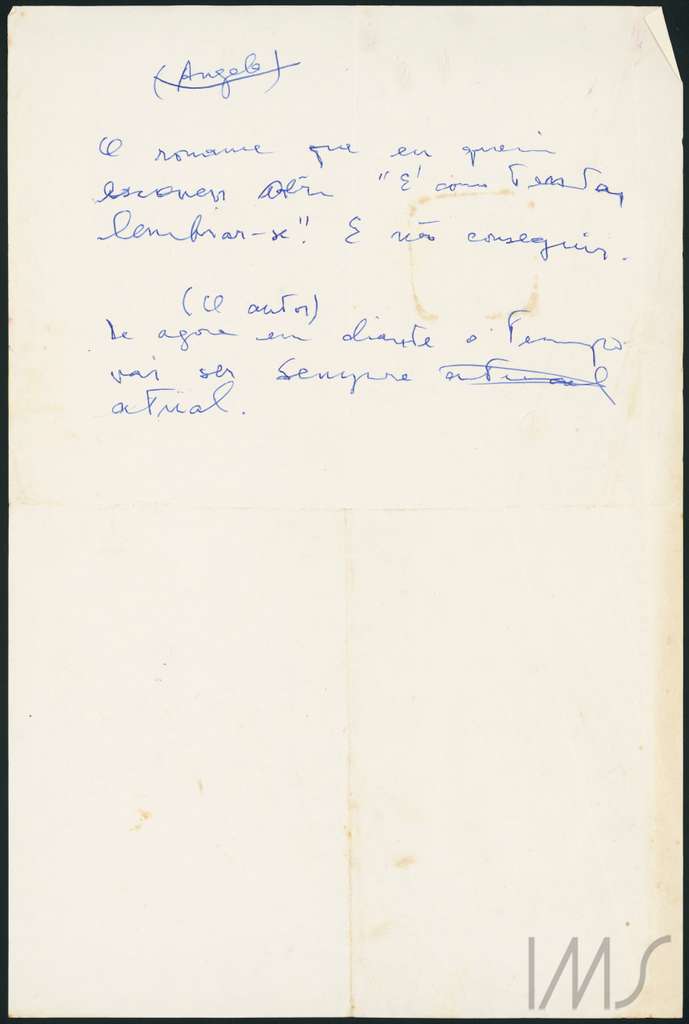 (Angela)
O romance que eu queria
escrever seria "É como tentar
lembrar-se". E não conseguir.
(O autor)
De agora em diante o tempo
vai ser sempre atual
atual.
IMS